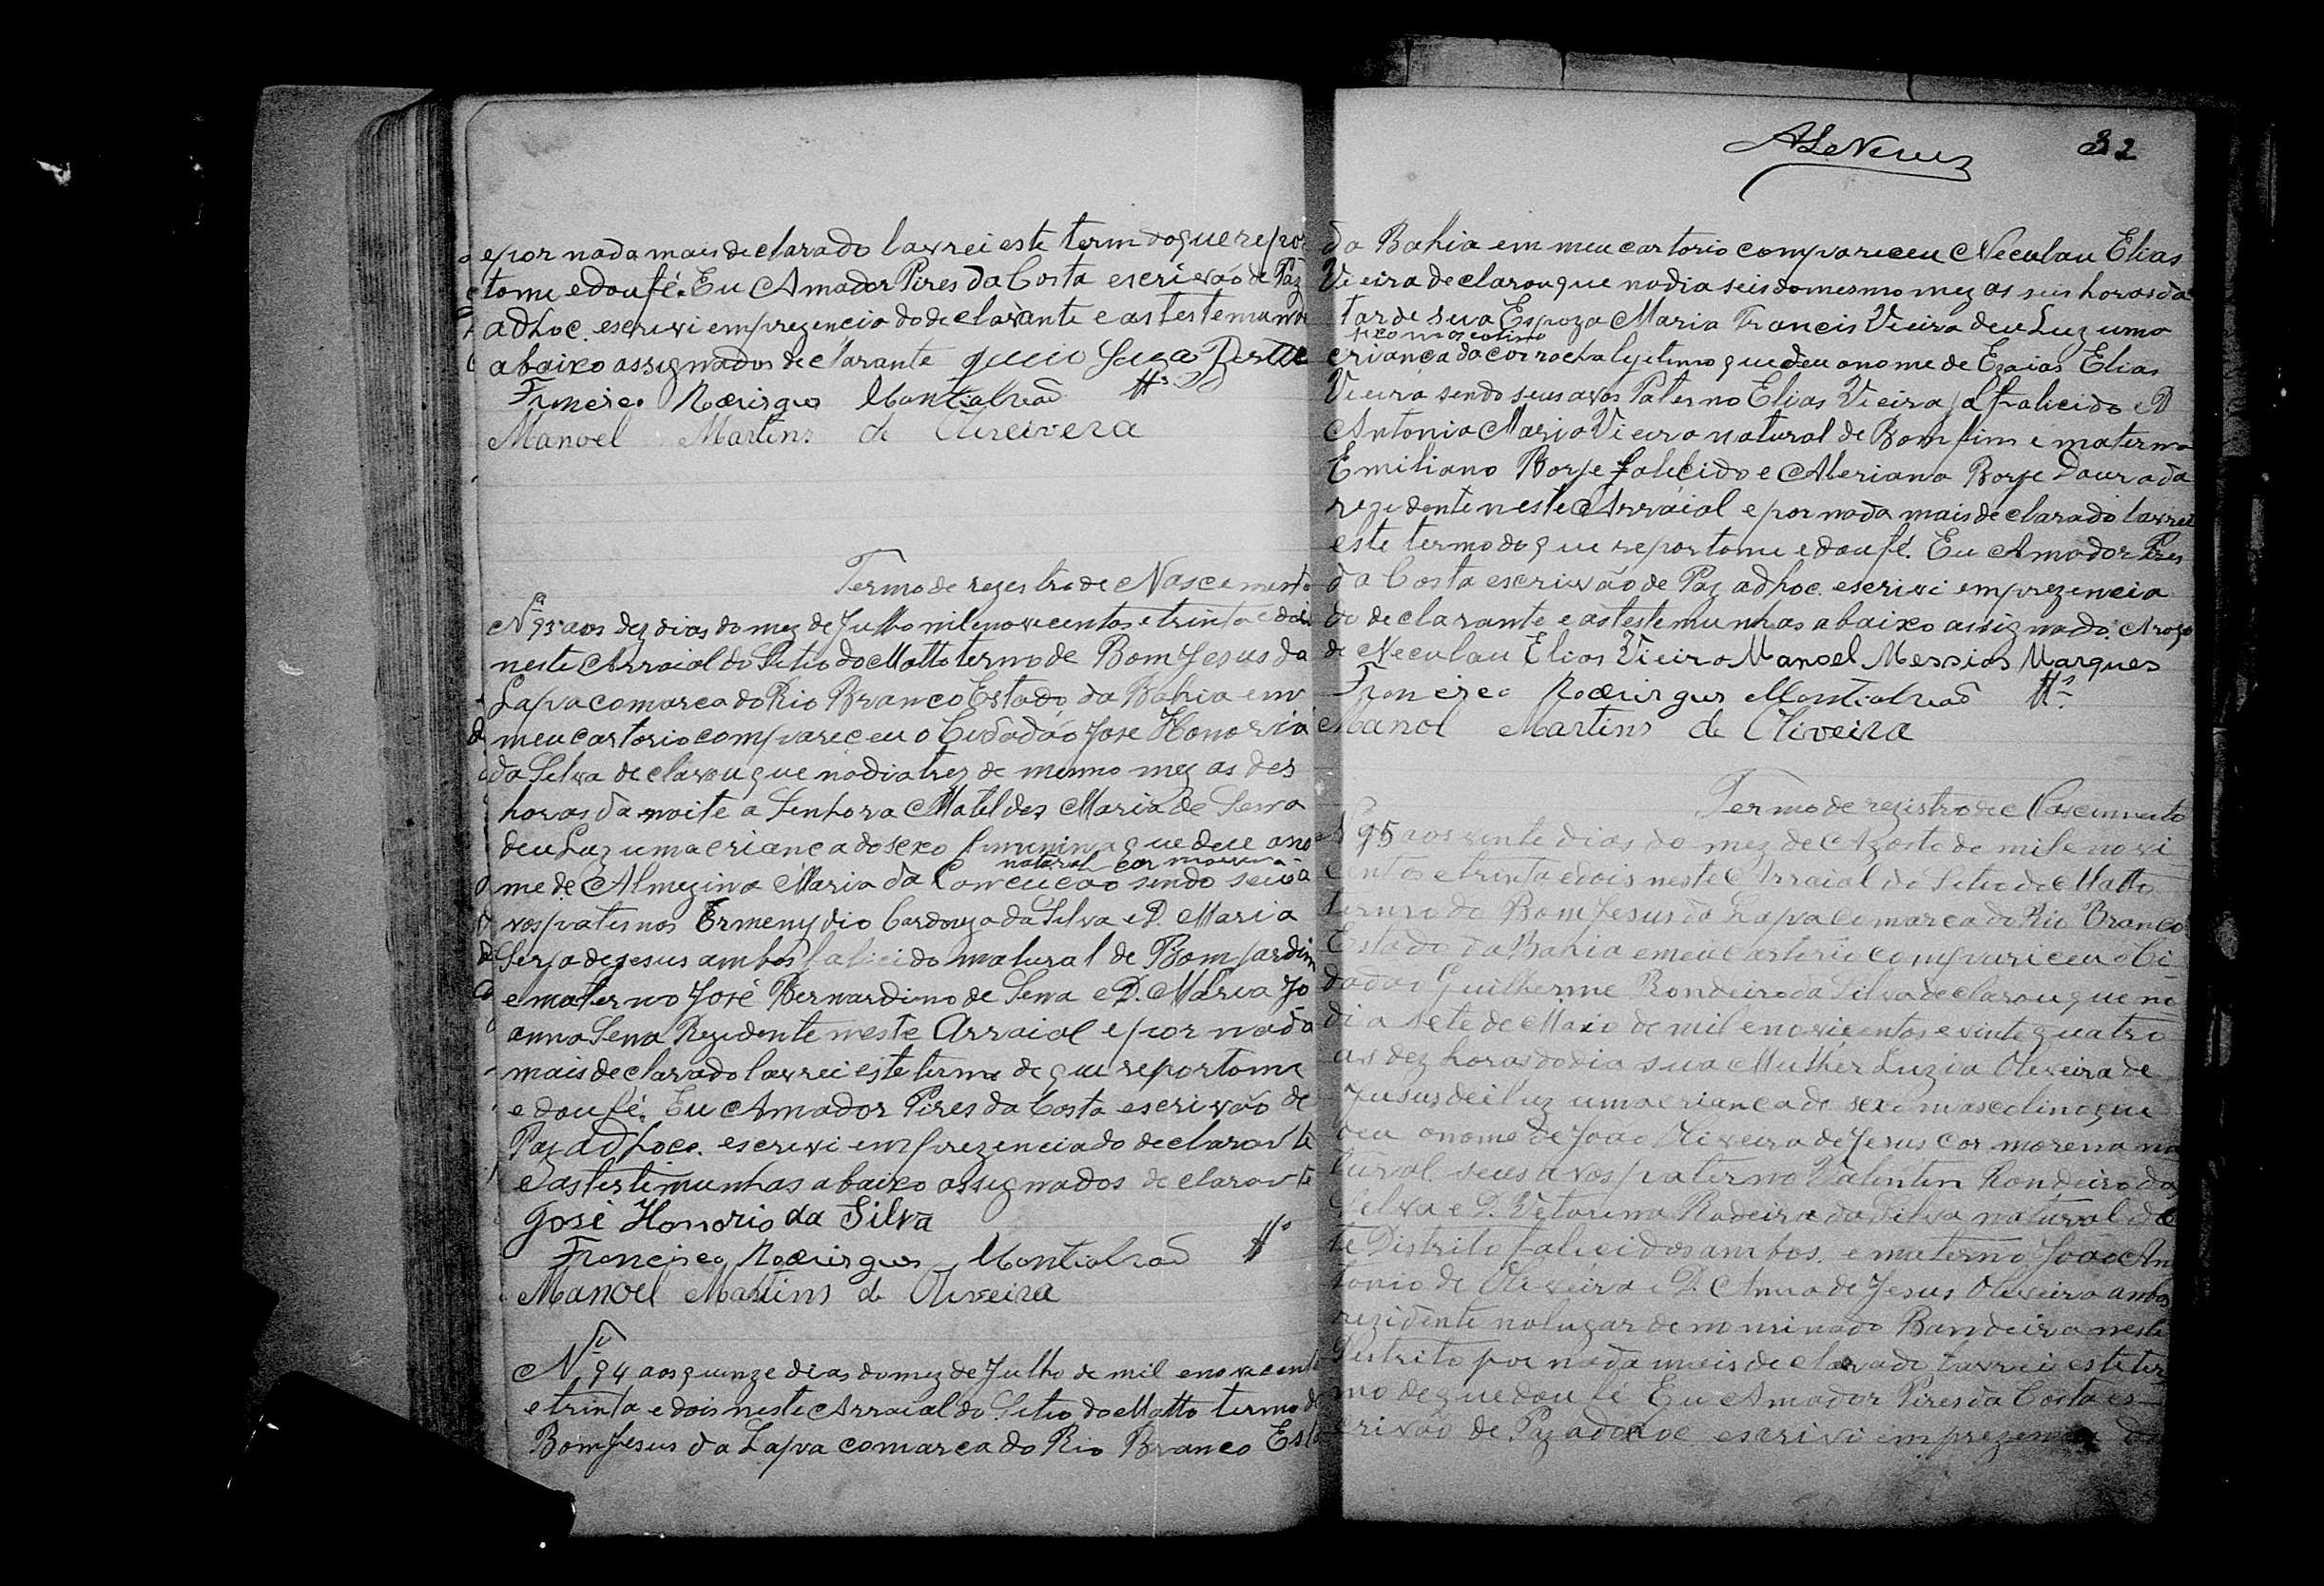 e por nada mais declarado lavrei este termo do que repor
tome e dou fé. Eu Amador Pires da Costa escrivão de Paz
adhoc. escrevi em prezencia do declarante e as testemunha
abaixo assignados declarante
Francisco Rodrigues Montialvão Ts
Manoel Martins de Oliveira
Termo de regestro de Nascimento
No 93 aos dez dias do mez de Julho mil enovecentos e trinta e dois
neste Arraial do Sitio do Matto termo de Bom Jesus da
Lapa comarca do Rio Branco Estado da Bahia em
meu cartorio compareceu o Cidadão José Honorio
da Silva declarou que nodia trez de mesmo mez as dez
horas da noite a Senhora Matildes Maria de Sena
deu Luz uma criança do sexo feminina que deu ano
natural cor morena
me de Almezina Maria da Conceicão sendo seus a
vos paternos Ermenydio Cardozo da Silva e D. Maria
de Jesus ambos falicido natural de Bom Jardim
e materno José Bernardino de Sena e D. Maria Jo
anna Sena Rezidente neste Arraial e por nada
mais declarado lavrei este termo de que reportome
e dou fé. Eu Amador Pires da Costa escrivão de
Paz adhoc. escrevi em prezencia do declarante
e as testimunhas abaixo assignados declarante
José Honorio da Silva
Francisco Rodrigues Montialvão Ts
Manoel Martins de Oliveira
No 94 aos quinze dias do mez de Julho de mil enovecento
e trinta e dois neste Arraial do Sitio do Matto termo de
Bom Jesus da Lapa comarca do Rio Branco Esta
32
da Bahia em meu cartorio compareceu Neculau Elias
Vieira declarou que nodia seis do mesmo mez as seis horas da
tarde sua Espoza Maria Francis Vieira deu Luz uma
sexo mascolino
criança da cor roxa legetimo que deu onome de Ezaias Elias
Vieira sendo seus avos Paterno Elias Vieira ja falicido e D
Antonia Maria Vieira natural de Bomfim e materno
Emiliano Borje falicido e Aleriana Borje Dourada
rezidente neste Arraial e por nada mais declarado lavrei
este termo do que reportome e dou fé. Eu Amador Pires
da Costa escrivão de Paz adhoc. escrivi em prezencia
do declarante e as testemunhas abaixo assignado. Arogo
de Neculau Elias Vieira Manoel Messias Marques
Francisco Rodrigues Montialvão Ts
Manoel Martins de Oliveira
Termo de registro de Nascimento
No 95 aos vinte dias do mez de Agosto de mil e novi
centos e trinta e dois neste Arraial do Sitio do Matto
termo do Bom Jesus da Lapa comarca do Rio Branco
Estado da Bahia em eu cartorio compariceu o Ci-
dadao Guilherme Rondeiro da Silva declarou que no
dia sete de Maio de mil enovicentos e vinte quatro
as dez horas do dia sua Mulher Luzia Oliveira de
Jusus deu luz uma criança do sexo mascolino que
deu onome de João Oliveira de Jesus cor morena na
tural. seus avos paterno Valentim Rondeiro da
Selva e D. Vetorina Radeira da Silva natural des
te Distrito falicidos ambos. e materno João An
tonio de Oliveira e D. Anna de Jesus Oliveira ambos
rezidente nolugar denominado Bandeira neste
Destrito por nada mais declarado lavrei este ter
mo de que dou fé Eu Amador Pires da Costa es-
crivão de Paz adhoc escrivi em prezencia do